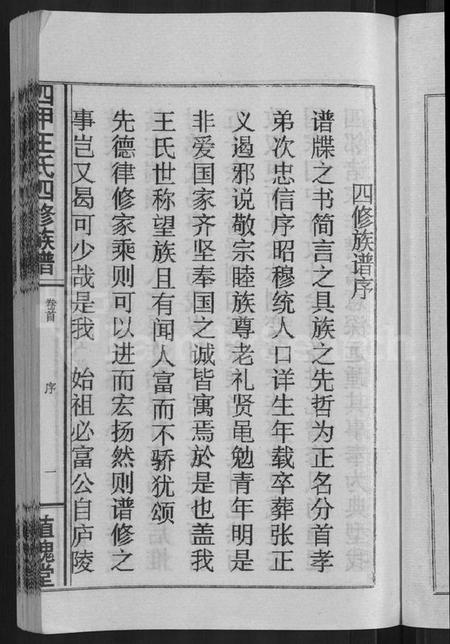 四修族谱序
谱牒之书简言之具族之先哲为正名分首孝
弟次忠信序昭穆统人口详生年载卒葬张正
义遏邪说敬宗睦族尊老礼贤黾勉青年明是
非爱国家齐坚奉国之诚皆寓焉於是也盖我
王氏世称望族且有闻人富而不骄犹颂
先德律修家乘则可以进而宏扬然则谱修之
事岂又曷可少哉是我 始祖必富公自庐陵
四甲王氏四修族谱
卷首
序
一
植槐堂